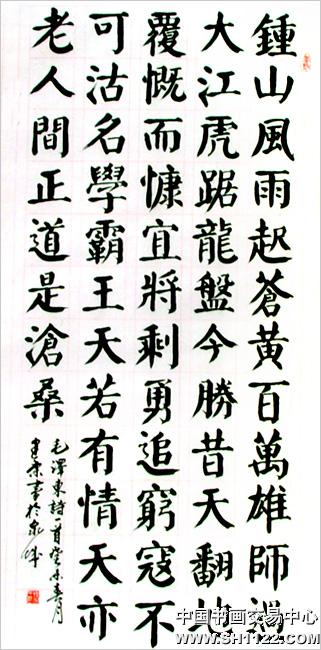 鍾山風雨起蒼黃百萬雄師過
大江虎踞龍盤今勝昔天翻地
覆慨而慷宜將剩勇追窮寇不
可沽名學霸王天若有情天亦
老人間正道是滄桑
毛澤東詩一首癸未春月
書於泉
中国书画交易中心
www.SH1122.com